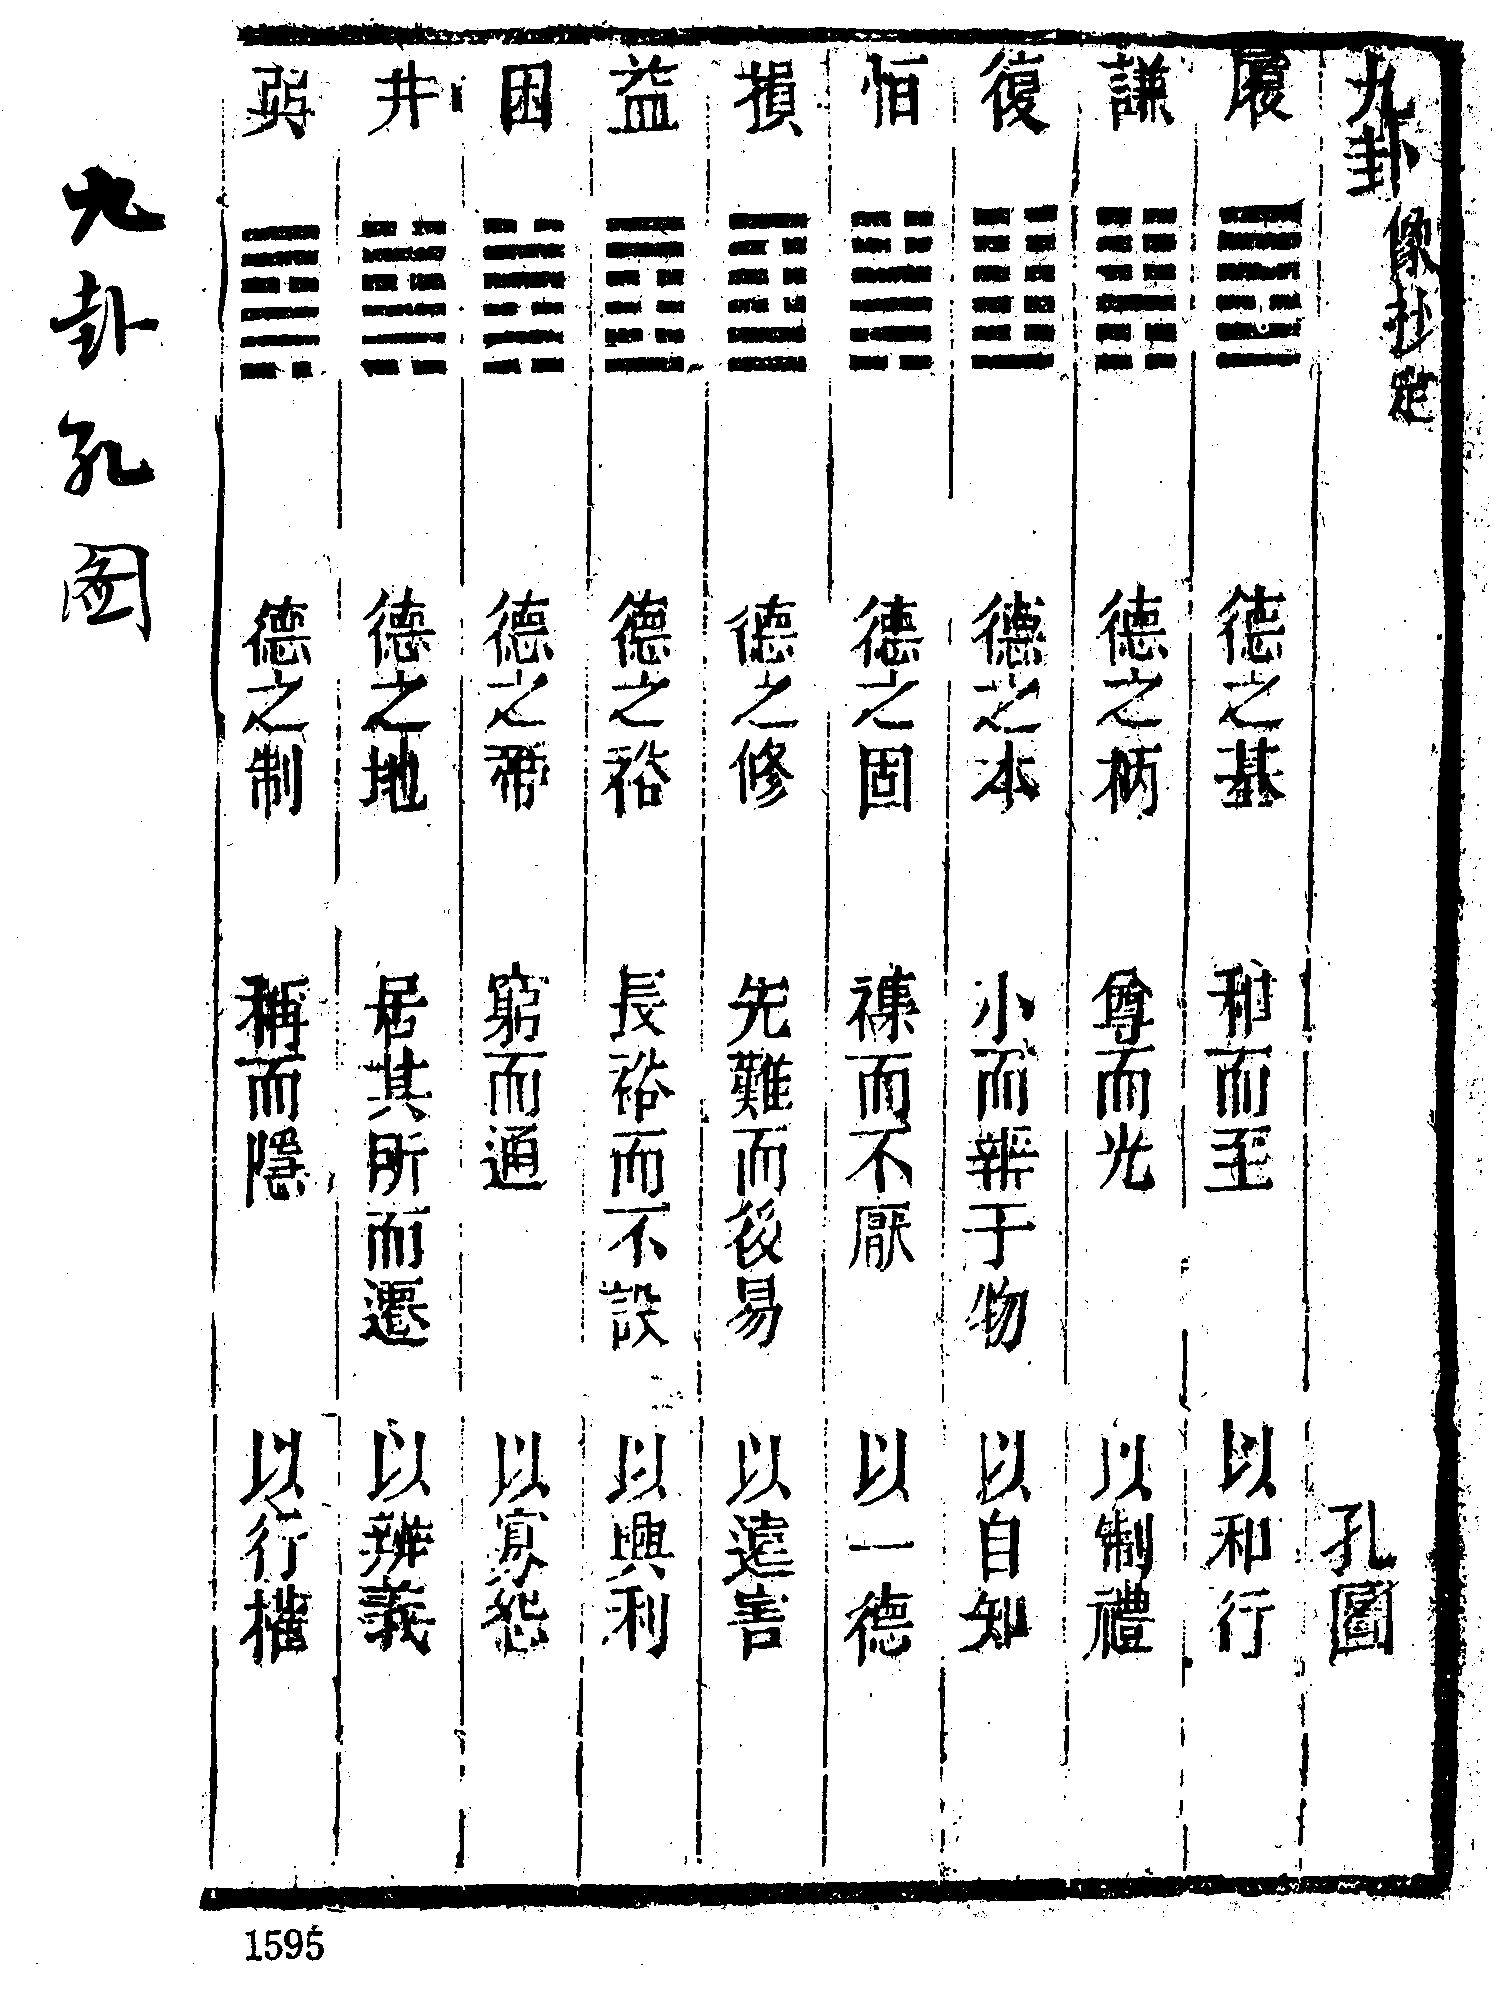 九卦 孔圖
像抄定
履 ䷉ 德之基 和而至 以和行
謙 ䷎ 德之柄 尊而光 以制禮
復 ䷗ 德之本 小而辨于物 以自知
恒 ䷟ 德之固 襍而不厭 以一德
損 ䷨ 德之修 先難而後易 以遠害
益 ䷩ 德之裕 長裕而不設 以興利
困 ䷮ 德之 窮而通 以寡怨
井 ䷯ 德之地 居其所而遷 以辨義
巽 ䷸ 德之制 稱而隱 以行權
九卦孔图
1595